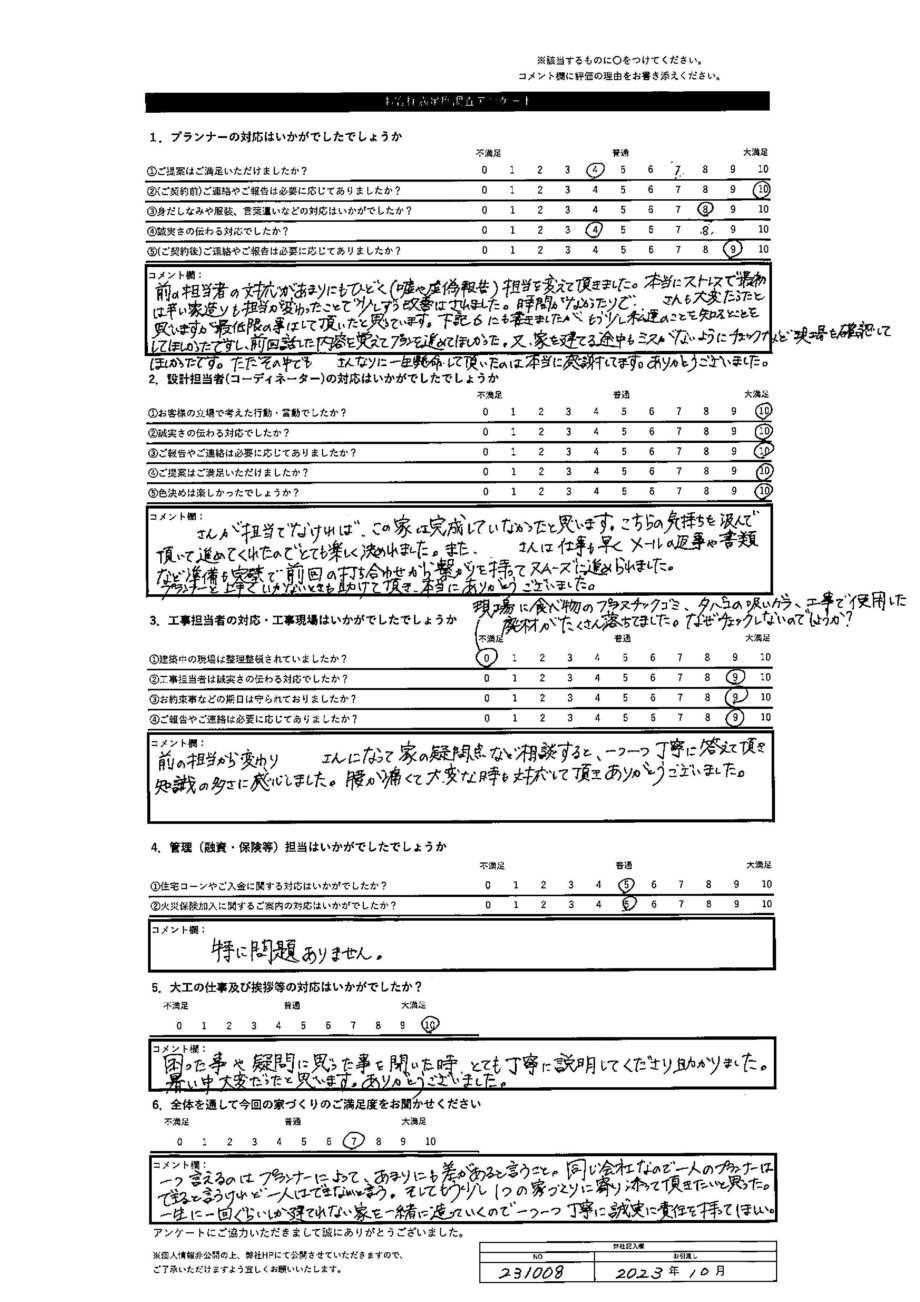 ※該当するものに〇をつけてください。
コメント欄に評価の理由をお書き添えください。
お客様満足度調査アンケート
1．プランナーの対応はいかがでしたでしょうか
不満足 普通 大満足
①ご提案はご満足いただけましたか？ 0 1 2 3 4 5 6 7 8 9 10
②(ご契約前)ご連絡やご報告は必要に応じてありましたか？ 0 1 2 3 4 5 6 7 8 9 10
③身だしなみや服装、言葉遣いなどの対応はいかがでしたか？ 0 1 2 3 4 5 6 7 8 9 10
④誠実さの伝わる対応でしたか？ 0 1 2 3 4 5 6 7 8 9 10
⑤(ご契約後)ご連絡やご報告は必要に応じてありましたか？ 0 1 2 3 4 5 6 7 8 9 10
コメント欄：
前の担当者の対応があまりにもひどく(嘘や虚偽報告)担当を変えて頂きました。本当にストレスで最初
は辛い家造りも担当が変わったことで少しずつ改善はされました。時間がなかったりで、 さんも大変だったと
思いますが最低限の事はして頂いたと思っています。下記6にも書きましたが、もう少し私達のことを知ることを
してほしかったですし、前回話した内容を覚えてプランを進めてほしかった。又、家を建てる途中もミスがないようにチェックなど現場を確認して
ほしかったです。ただその中でも さんなりに一生懸命して頂いたのは本当に感謝してます。ありがとうございました。
2．設計担当者(コーディネーター)の対応はいかがでしたでしょうか
不満足 普通 大満足
①お客様の立場で考えた行動・言動でしたか？ 0 1 2 3 4 5 6 7 8 9 10
②誠実さの伝わる対応でしたか？ 0 1 2 3 4 5 6 7 8 9 10
③ご報告やご連絡は必要に応じてありましたか？ 0 1 2 3 4 5 6 7 8 9 10
④ご提案はご満足いただけましたか？ 0 1 2 3 4 5 6 7 8 9 10
⑤色決めは楽しかったでしょうか？ 0 1 2 3 4 5 6 7 8 9 10
コメント欄：
さんが担当でなければ、この家は完成していなかったと思います。こちらの気持ちを汲んで
頂いて進めてくれたのでとても楽しく決めれました。また、 さんは仕事も早く メールの返事や書類
など準備も完璧で前回の打ち合わせから繋がりを持ってスムーズに進められました。
プランナーと上手くいかないときも助けて頂き、本当にありがとうございました。
現場に食べ物のプラスチックゴミ、タバコの吸いガラ、工事で使用した
廃材がたくさん落ちてました。なぜチェックしないのでしょうか？
3．工事担当者の対応・工事現場はいかがでしたでしょうか
不満足 普通 大満足
①建築中の現場は整理整頓されていましたか？ 0 1 2 3 4 5 6 7 8 9 10
②工事担当者は誠実さの伝わる対応でしたか？ 0 1 2 3 4 5 6 7 8 9 10
③お約束事などの期日は守られておりましたか？ 0 1 2 3 4 5 6 7 8 9 10
④ご報告やご連絡は必要に応じてありましたか？ 0 1 2 3 4 5 6 7 8 9 10
コメント欄：
前の担当から変わり さんになって家の疑問点など相談すると、一つ一つ丁寧に答えて頂き
知識の多さに感心しました。腰が痛くて大変な時も対応して頂きありがとうございました。
4．管理（融資・保険等）担当はいかがでしたでしょうか
不満足 普通 大満足
①住宅ローンやご入金に関する対応はいかがでしたか？ 0 1 2 3 4 5 6 7 8 9 10
②火災保険加入に関するご案内の対応はいかがでしたか？ 0 1 2 3 4 5 6 7 8 9 10
コメント欄：
特に問題ありません。
5．大工の仕事及び挨拶等の対応はいかがでしたか？
不満足 普通 大満足
0 1 2 3 4 5 6 7 8 9 10
コメント欄：
困った事や疑問に思った事を聞いた時、とても丁寧に説明してくださり助かりました。
暑い中大変だったと思います。ありがとうございました。
6．全体を通して今回の家づくりのご満足度をお聞かせください
不満足 普通 大満足
0 1 2 3 4 5 6 7 8 9 10
コメント欄：
一つ言えるのはプランナーによって、あまりにも差があると言うこと。同じ会社なので一人のプランナーは
できると言うけれど一人はできないと言う。そしてもう少し1つの家づくりに寄り添って頂きたいと思った。
一生に一回ぐらいしか建てれない家を一緒に造っていくので一つ一つ丁寧に誠実に責任を持ってほしい。
アンケートにご協力いただきまして誠にありがとうございました。
※個人情報非公開の上、弊社HPにて公開させていただきますので、
ご了承いただけますよう宜しくお願いいたします。
弊社記入欄
NO お引渡し
231008 2023年10月